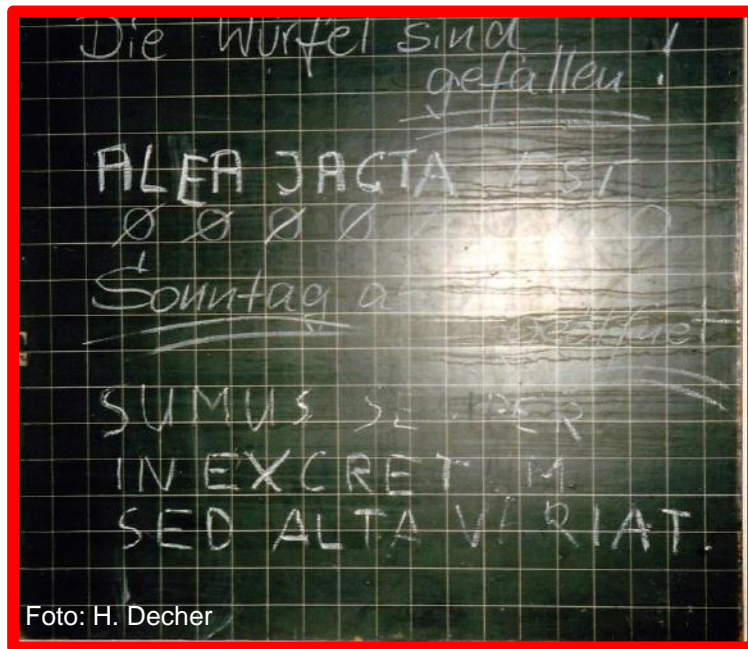 Die Würfel sind
gefallen !
ALEA JACTA EST
Ø Ø Ø Ø
Sonntag
geöffnet
SUMUS SEMPER
IN
SED ALTA VARIAT.
Foto: H. Decher